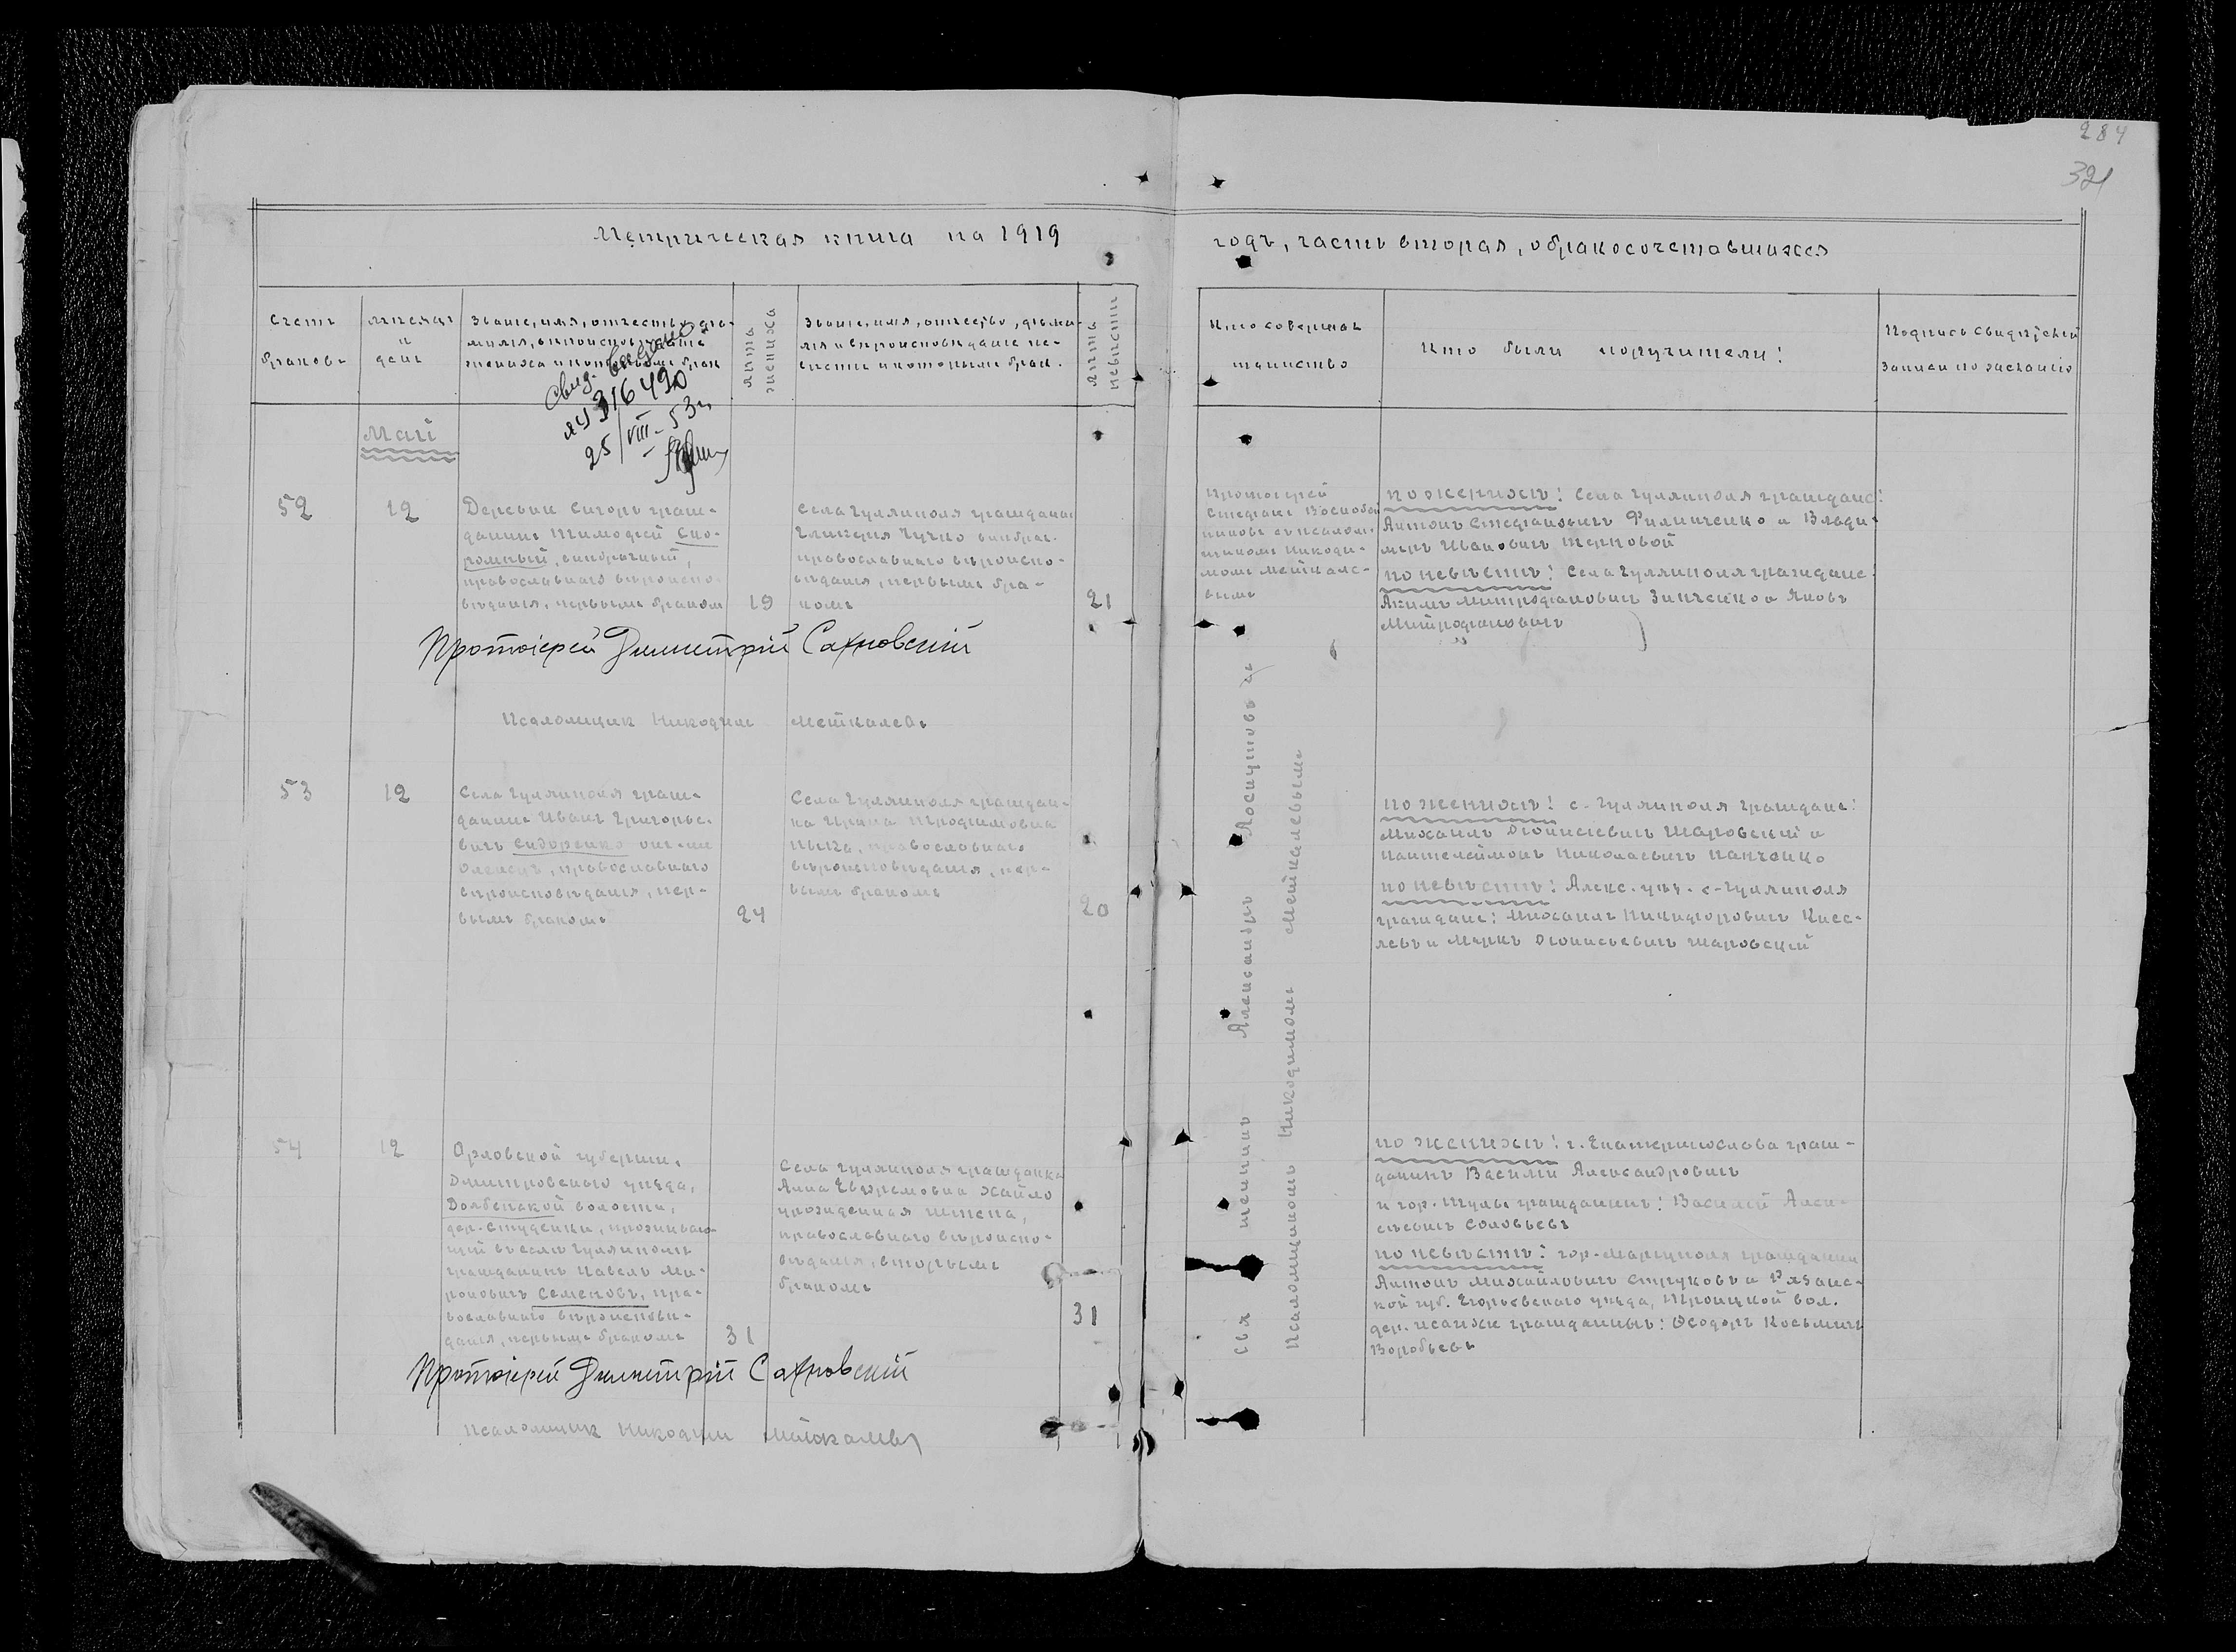 284
321
Метрическая книга на 1919
годъ, часть вторая, о бракосочетавшихся
Счетъ
браковъ
мѣсяцъ
и
день
Званіе, имя, отчество, фа-
милія, вѣроисповѣданіе
жениха и которымъ брак
лѣта
жениха
Званіе, имя, отчество, фами-
лія и вѣроисповѣданіе не-
вѣсты и которымъ брак.
лѣта
невѣсты
Кто совершал
таинство
Кто были поручители:
Подпись свидѣтелей
Записи по желанію
Свид. выдано
316490
25/VIII-53г.
Май
52
12
Деревни граж-
данинъ Тимофей Ско-
ромный, внибрачный,
православнаго вѣроиспо-
вѣданія, первымъ браком
19
Села Гуляйполя гражданка
Гликерія Чучко внибрач.
православнаго вѣроиспо-
вѣданія, первымъ бра-
комъ
21
Протоіерей
Стефанъ Воскобой
никовъ съ псалом-
щикомъ Никоди-
момъ Меткале-
вымъ
по женихѣ: Села Гуляйполя граждане:
Антонъ Стефановичъ Филипченко и Влади-
міръ Ивановичъ Терновой
по невѣстѣ: Села Гуляйполя граждане:
Акимъ Митрофановичъ Зинченко и Яковъ
Митрофановичъ "
Протоіерей Димитрій Сахновскій
Псаломщик Никодим Меткалевъ
53
12
Села Гуляйполя граж-
данинъ Иванъ Григорье-
вичъ Сидоренко
православнаго
вѣроисповѣданія, пер-
вымъ бракомъ
24
Села Гуляйполя граждан-
ка Ирина Трофимовна
православнаго
вѣроисповѣданія, пер-
вымъ бракомъ
20
Священникъ Александръ Лоскутовъ и
Псаломщикомъ Никодимомъ Меткалевымъ
по женихѣ: с. Гуляйполя граждане:
Михаилъ Діонисіевичъ Шаровскій и
Пантелеймонъ Николаевичъ Панченко
по невѣстѣ: Алекс. уѣз. с. Гуляйполя
граждане: Михаилъ Никифоровичъ Кисе-
левъ и Маркъ Діонисьевичъ Шаровскій
54
12
Орловской губерніи,
Дмитровскаго уѣзда,
Долбенской волости,
дер. Студенки, проживаю-
щій въ селѣ Гуляйполѣ
гражданинъ Павелъ Ми-
роновичъ Семеновъ, пра-
вославнаго вѣроисповѣ-
данія, первымъ бракомъ
31
Села Гуляйполя гражданка
Анна Евфремовна Хайло
урожденная Шпета,
православнаго вѣроиспо-
вѣданія, вторымъ
бракомъ
31
по женихѣ: г. Екатеринослава граж-
данинъ Василій Александровичъ
и гор. Тулы гражданинъ: Василій Алек-
сѣевичъ Соловьевъ
по невѣстѣ: гор. Маріуполя гражданин
Антонъ Михайловичъ Струковъ и Рязанс-
кой губ. Егорьевскаго уѣзда, Троицкой вол.
дер. гражданинъ: Ѳеодоръ Косьмичъ
Воробьевъ
Протоіерей Димитрій Сахновскій
Псаломщик Никодим Меткалевъ